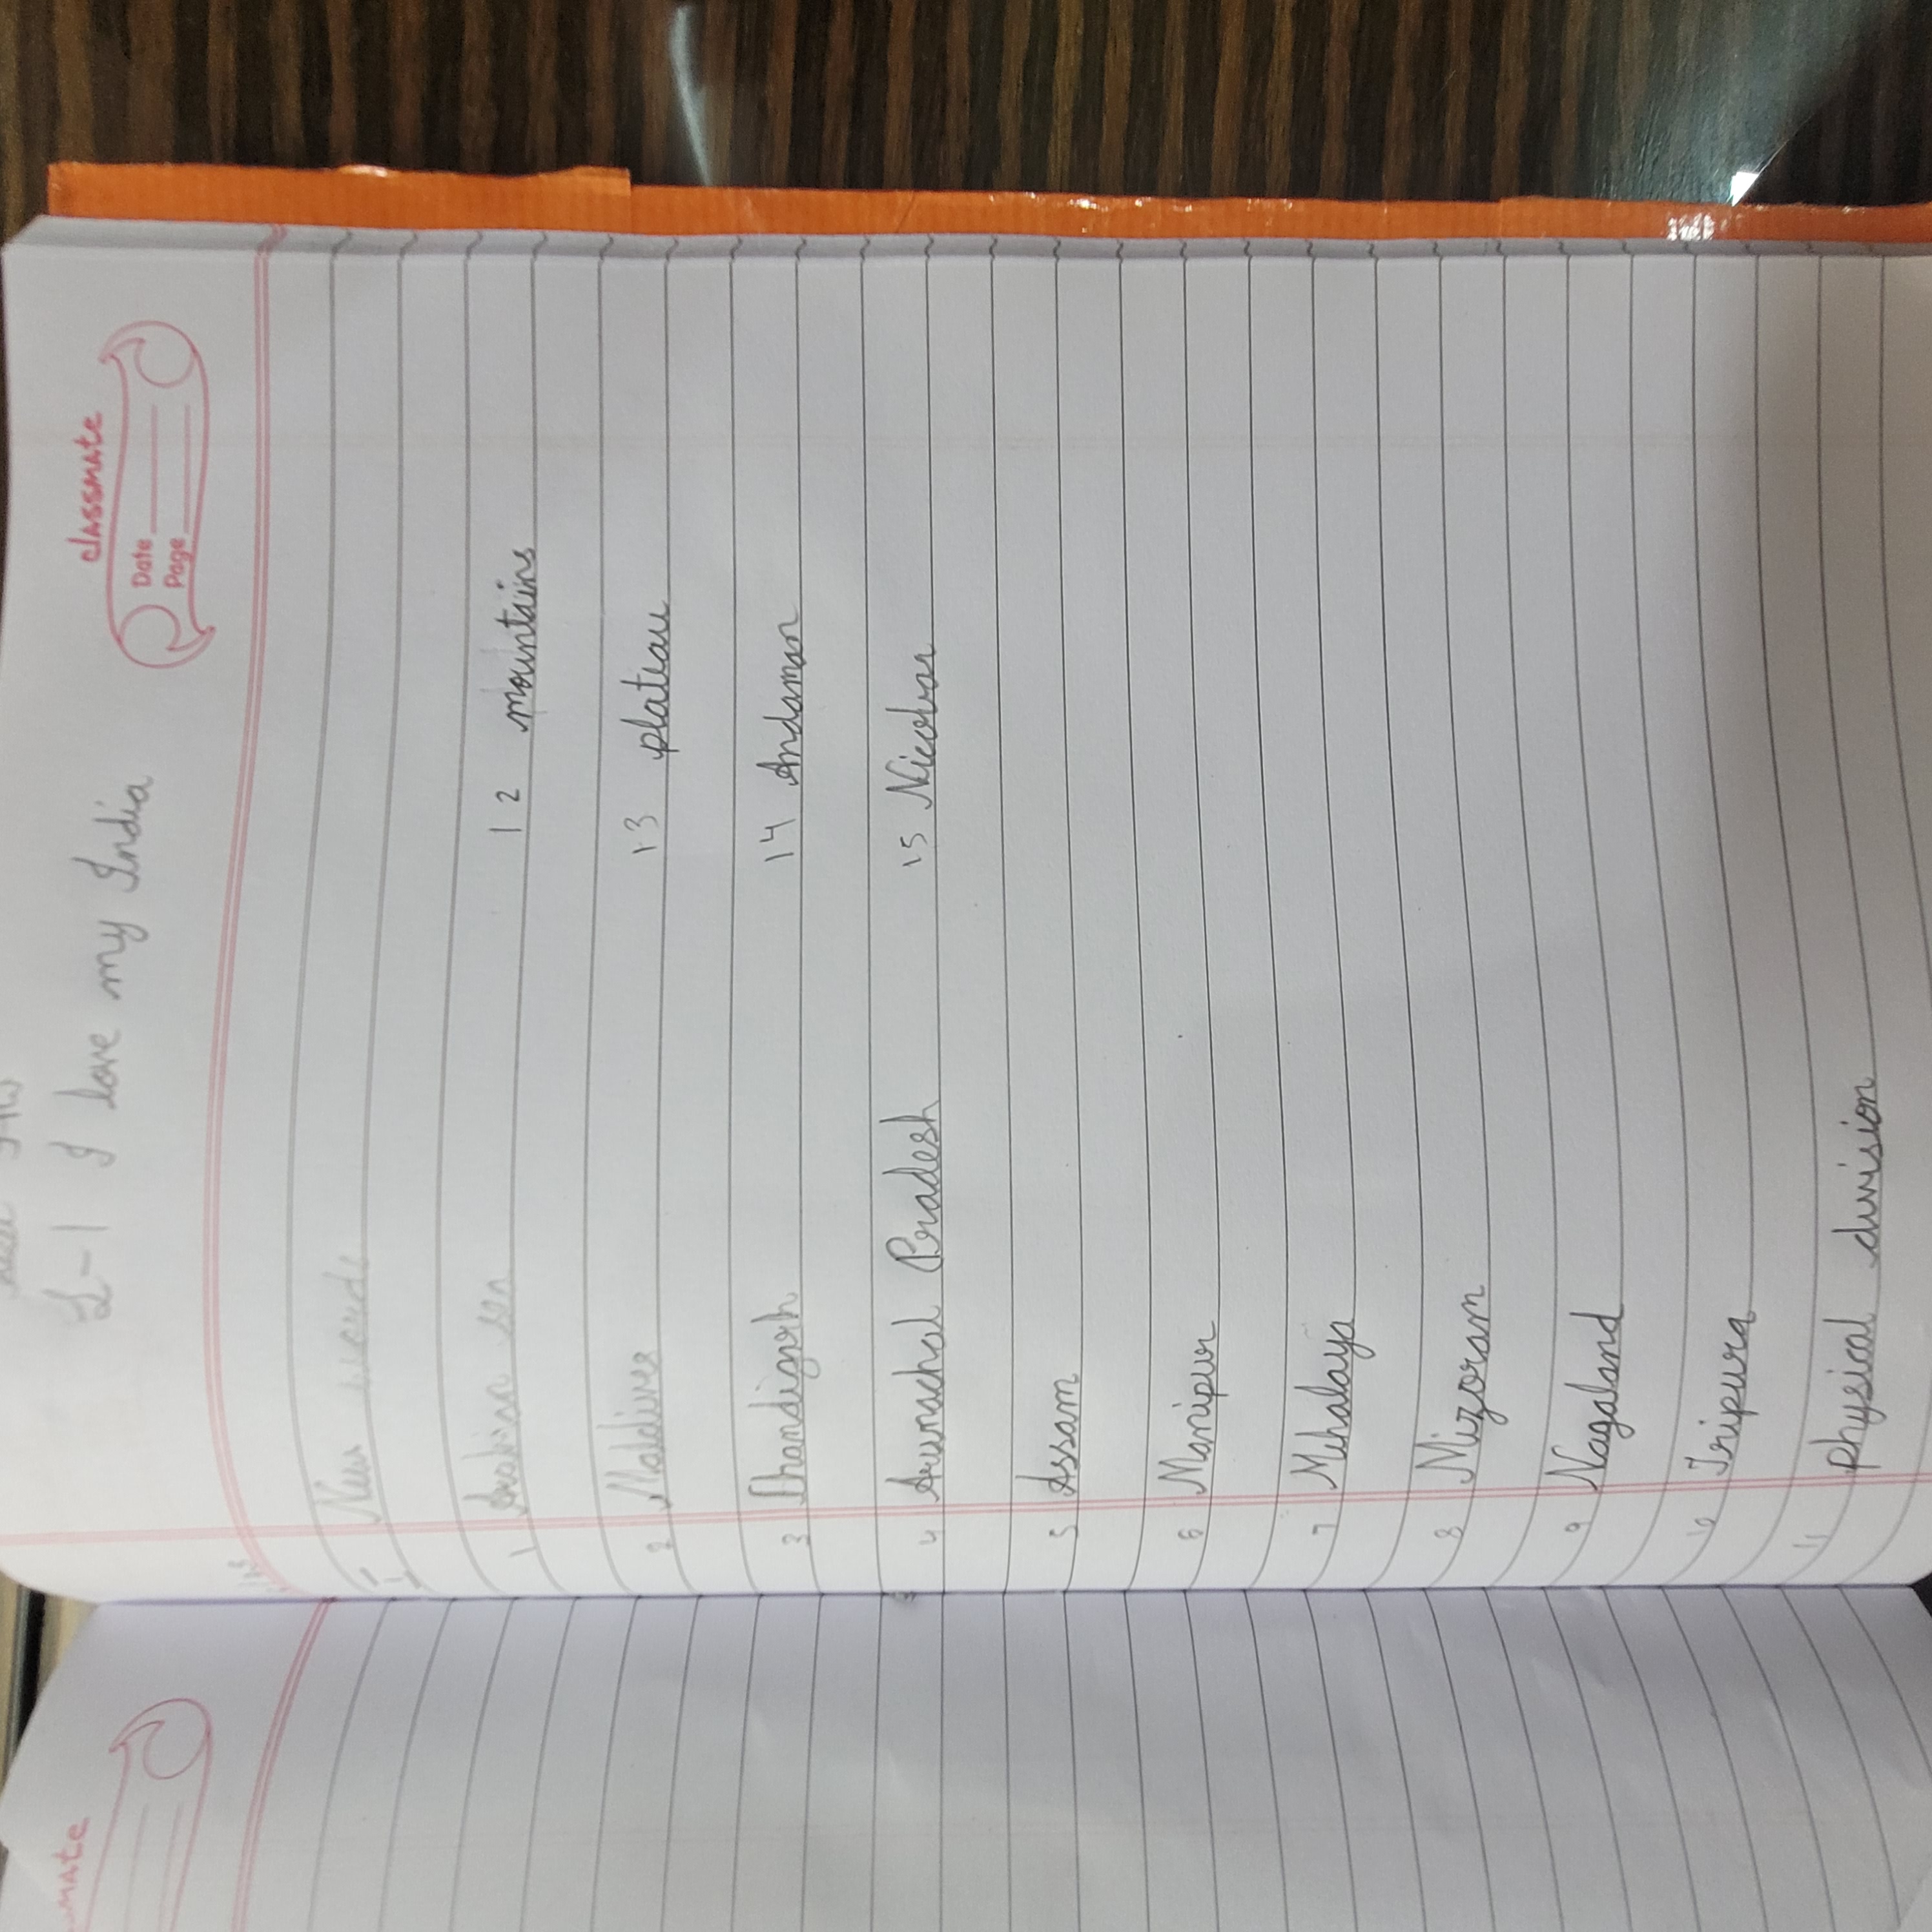 classmate
Date
Page
L-1 I love my India
I New words
1 Arabian sea
2 Maldives
3 Chandigarh
4 Arunachal Pradesh
5 Assam
6 Manipur
7 Mehalaya
8 Mizoram
9 Nagaland
10 Tripura
11 physical division
12 mountains
13 plateau
14 Andaman
15 Nicobar